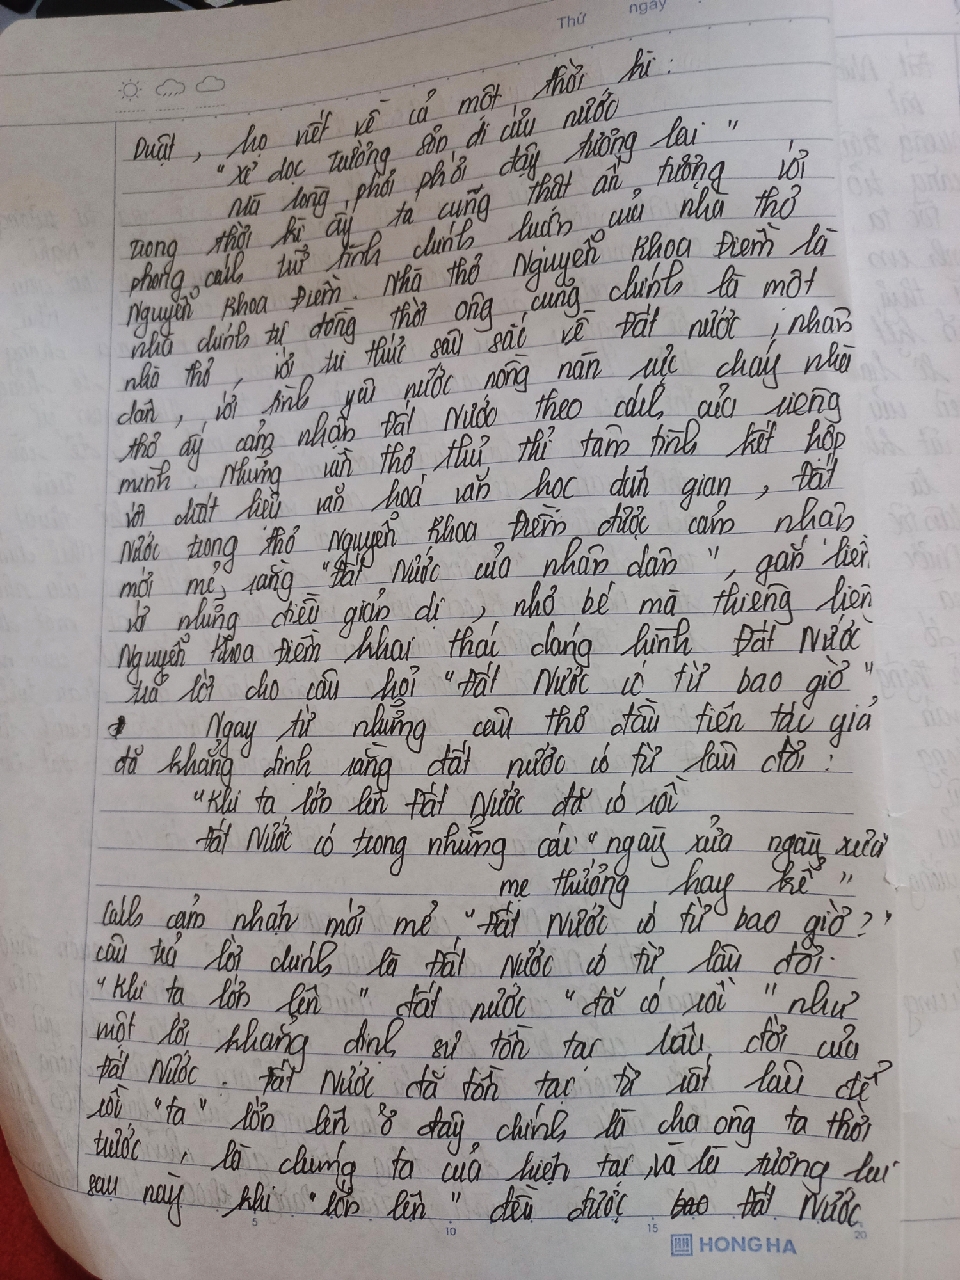 Thứ ngày
Duật, họ viết về cả một thời kì:
"Xẻ dọc trường sơn đi cứu nước
Mà lòng phơi phới dậy tương lai"
trong thời kì ấy ta cũng thật ấn tượng với
phong cách trữ tình chính luận của nhà thơ
Nguyễn Khoa Điềm. Nhà thơ Nguyễn Khoa Điềm là
nhà chính trị đồng thời ông cũng chính là một
nhà thơ, với tri thức sâu sắc về Đất nước, nhân
dân, với tình yêu nước nồng nàn rực cháy nhà
thơ ấy cảm nhận Đất Nước theo cách của riêng
mình. Những vần thơ thủ thỉ tâm tình kết hợp
với chất liệu văn hoá văn học dân gian, Đất
Nước trong thơ Nguyễn Khoa Điềm được cảm nhận
mới mẻ, rằng "Đất Nước của nhân dân", gắn liền
với những điều giản dị, nhỏ bé mà thiêng liên
Nguyễn Khoa Điềm khai thác dáng hình Đất Nước
trả lời cho câu hỏi "Đất Nước có từ bao giờ"
Ngay từ những câu thơ đầu tiên tác giả
đã khẳng định rằng đất nước có từ lâu đời:
"Khi ta lớn lên Đất Nước đã có rồi
Đất Nước có trong những cái "ngày xửa ngày xưa"
mẹ thường hay kể"
Cách cảm nhận mới mẻ "Đất Nước có từ bao giờ?"
câu trả lời chính là Đất Nước có từ lâu đời.
"Khi ta lớn lên" đất nước "đã có rồi" như
một lời khẳng định sự tồn tại lâu đời của
Đất Nước. Đất Nước đã tồn tại từ rất lâu để
rồi "ta" lớn lên ở đây chính là cha ông ta thời
trước, là chúng ta của hiện tại và là tương lai
sau này khi "lớn lên" đều được bao Đất Nước
5 10 15 20
HONG HA